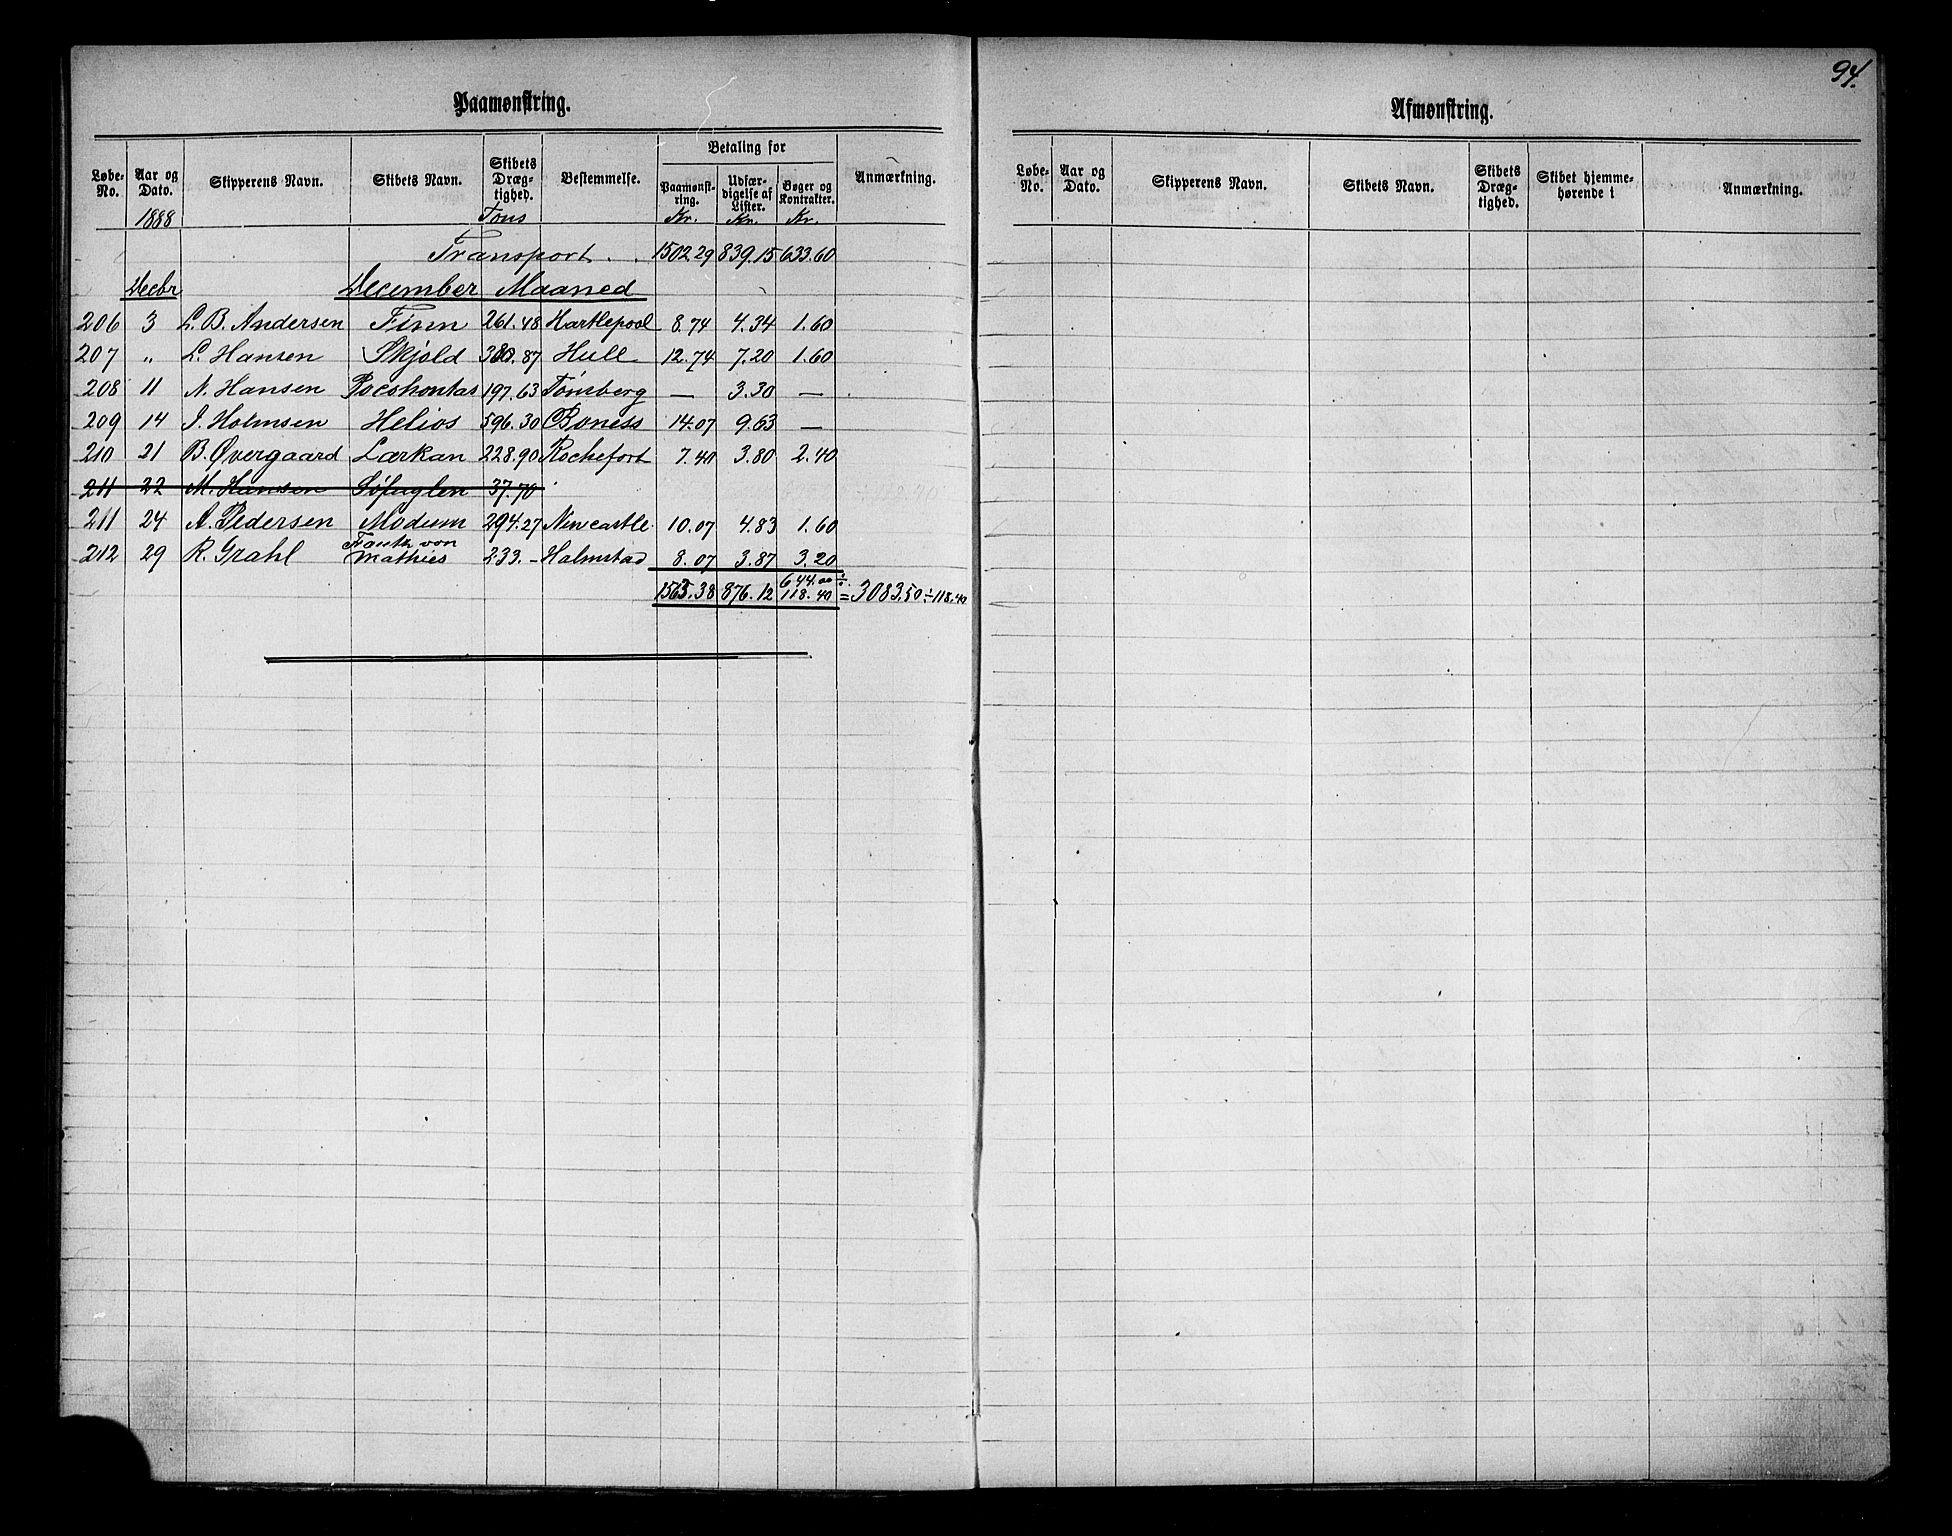 94.
Paamønstring.
Løbe-No. | Aar og Dato. | Skipperens Navn. | Skibets Navn. | Skibets Dræg-tighed. | Bestemmelse. | Betaling for | Anmærkning.
Paamønst-ring. | Udfær-digelse af Lister. | Bøger og Kontrakter.
1888 | Tons | Kr. | Kr. | Kr.
Transport . . 1502.29 839.15 633.60
Decbr December Maaned
206 3 L. B. Andersen Finn 261.48 Hartlepool 8.74 4.34 1.60
207 " L. Hansen Skjold 380.87 Hull 12.74 7.20 1.60
208 11 N. Hansen Pocohontas 197.63 Tönsberg — 3.30 —
209 14 J. Holmsen Helios 596.30 Boness 14.07 9.63 —
210 21 B. Øvergaard Lærkan 228.90 Rochefort 7.40 3.80 2.40
211 22 M. Hansen Søfuglen 37.70
211 24 A. Pedersen Modum 294.27 Newcastle 10.07 4.83 1.60
212 29 R. Grahl Fauth von Mathies 233.— Halmstad 8.07 3.87 3.20
644.00 ÷
1563.38 876.12 118.40 = 3083.50 ÷ 118.40
Afmønstring.
Løbe-No. | Aar og Dato. | Skipperens Navn. | Skibets Navn. | Skibets Dræg-tighed. | Skibet hjemme-hørende i | Anmærkning.